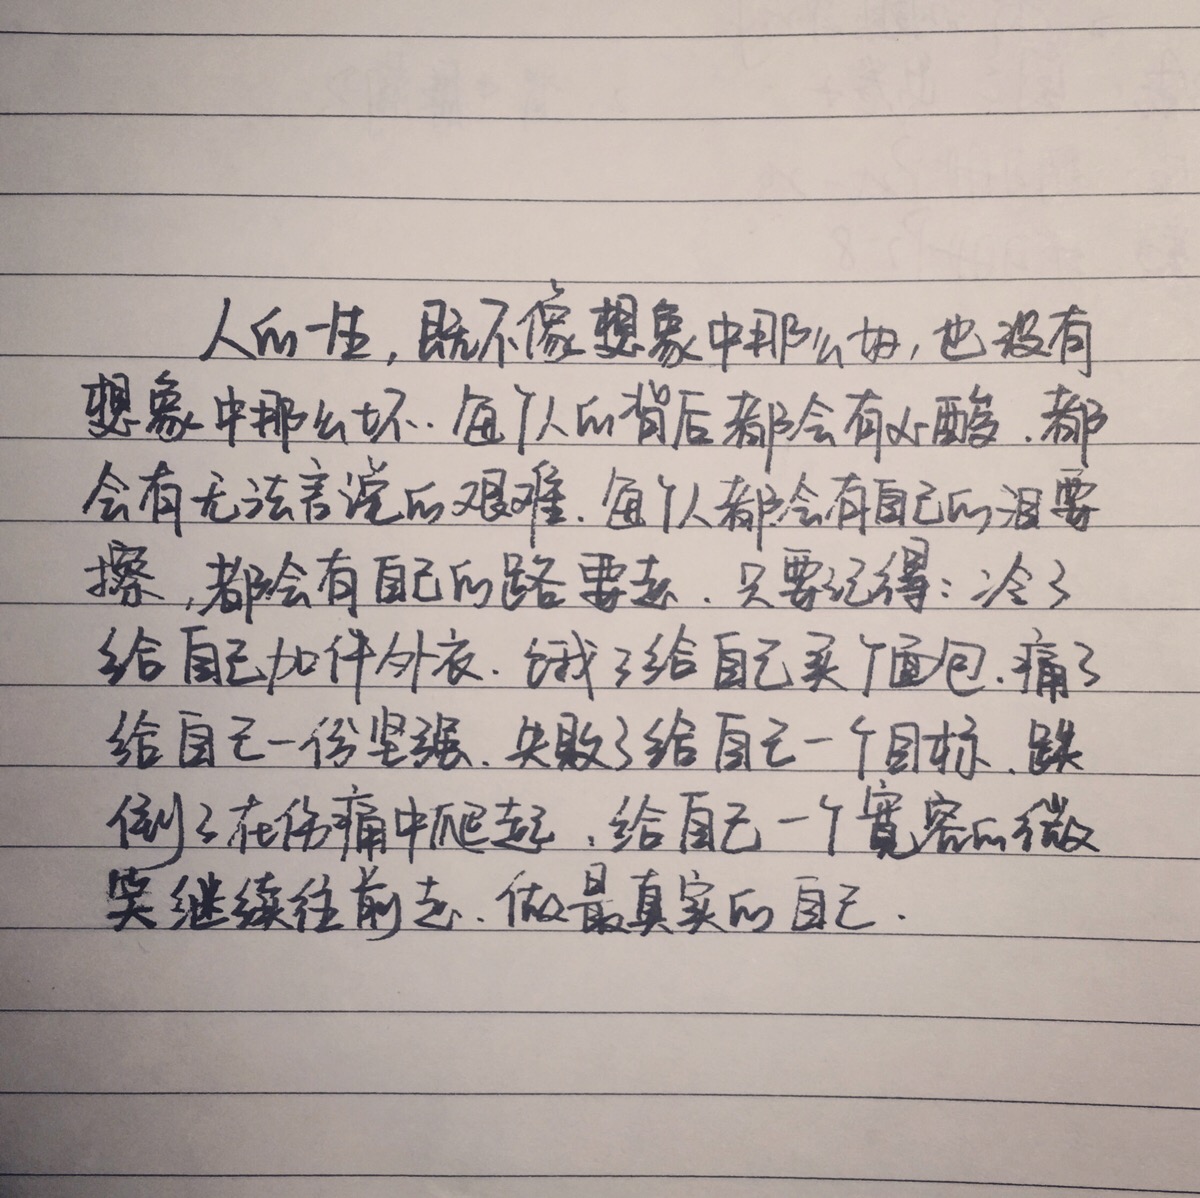 人的一生，既不像想象中那么好，也没有
想象中那么坏．每个人的背后都会有心酸．都
会有无法言说的艰难．每个人都会有自己的泪要
擦，都会有自己的路要走．只要记得：冷了
给自己加件外衣．饿了给自己买个面包．痛了
给自己一份坚强．失败了给自己一个目标．跌
倒了在伤痛中爬起，给自己一个寬容的微
笑继续往前走．做最真实的自己．